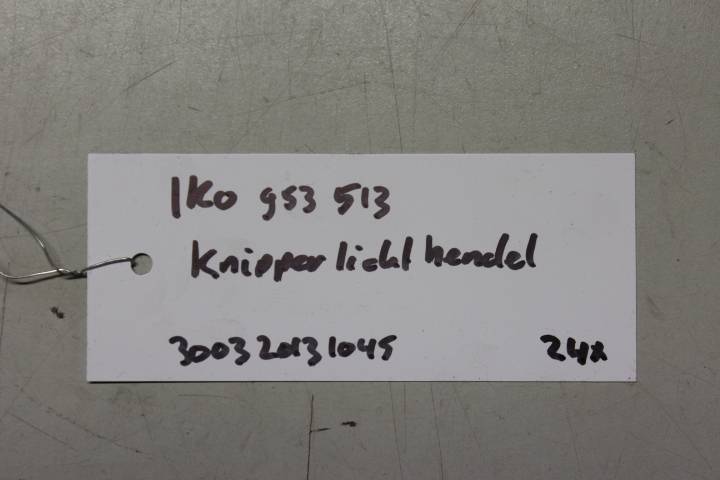 1K0 953 513
Knipper licht hendel
300320131045 24x